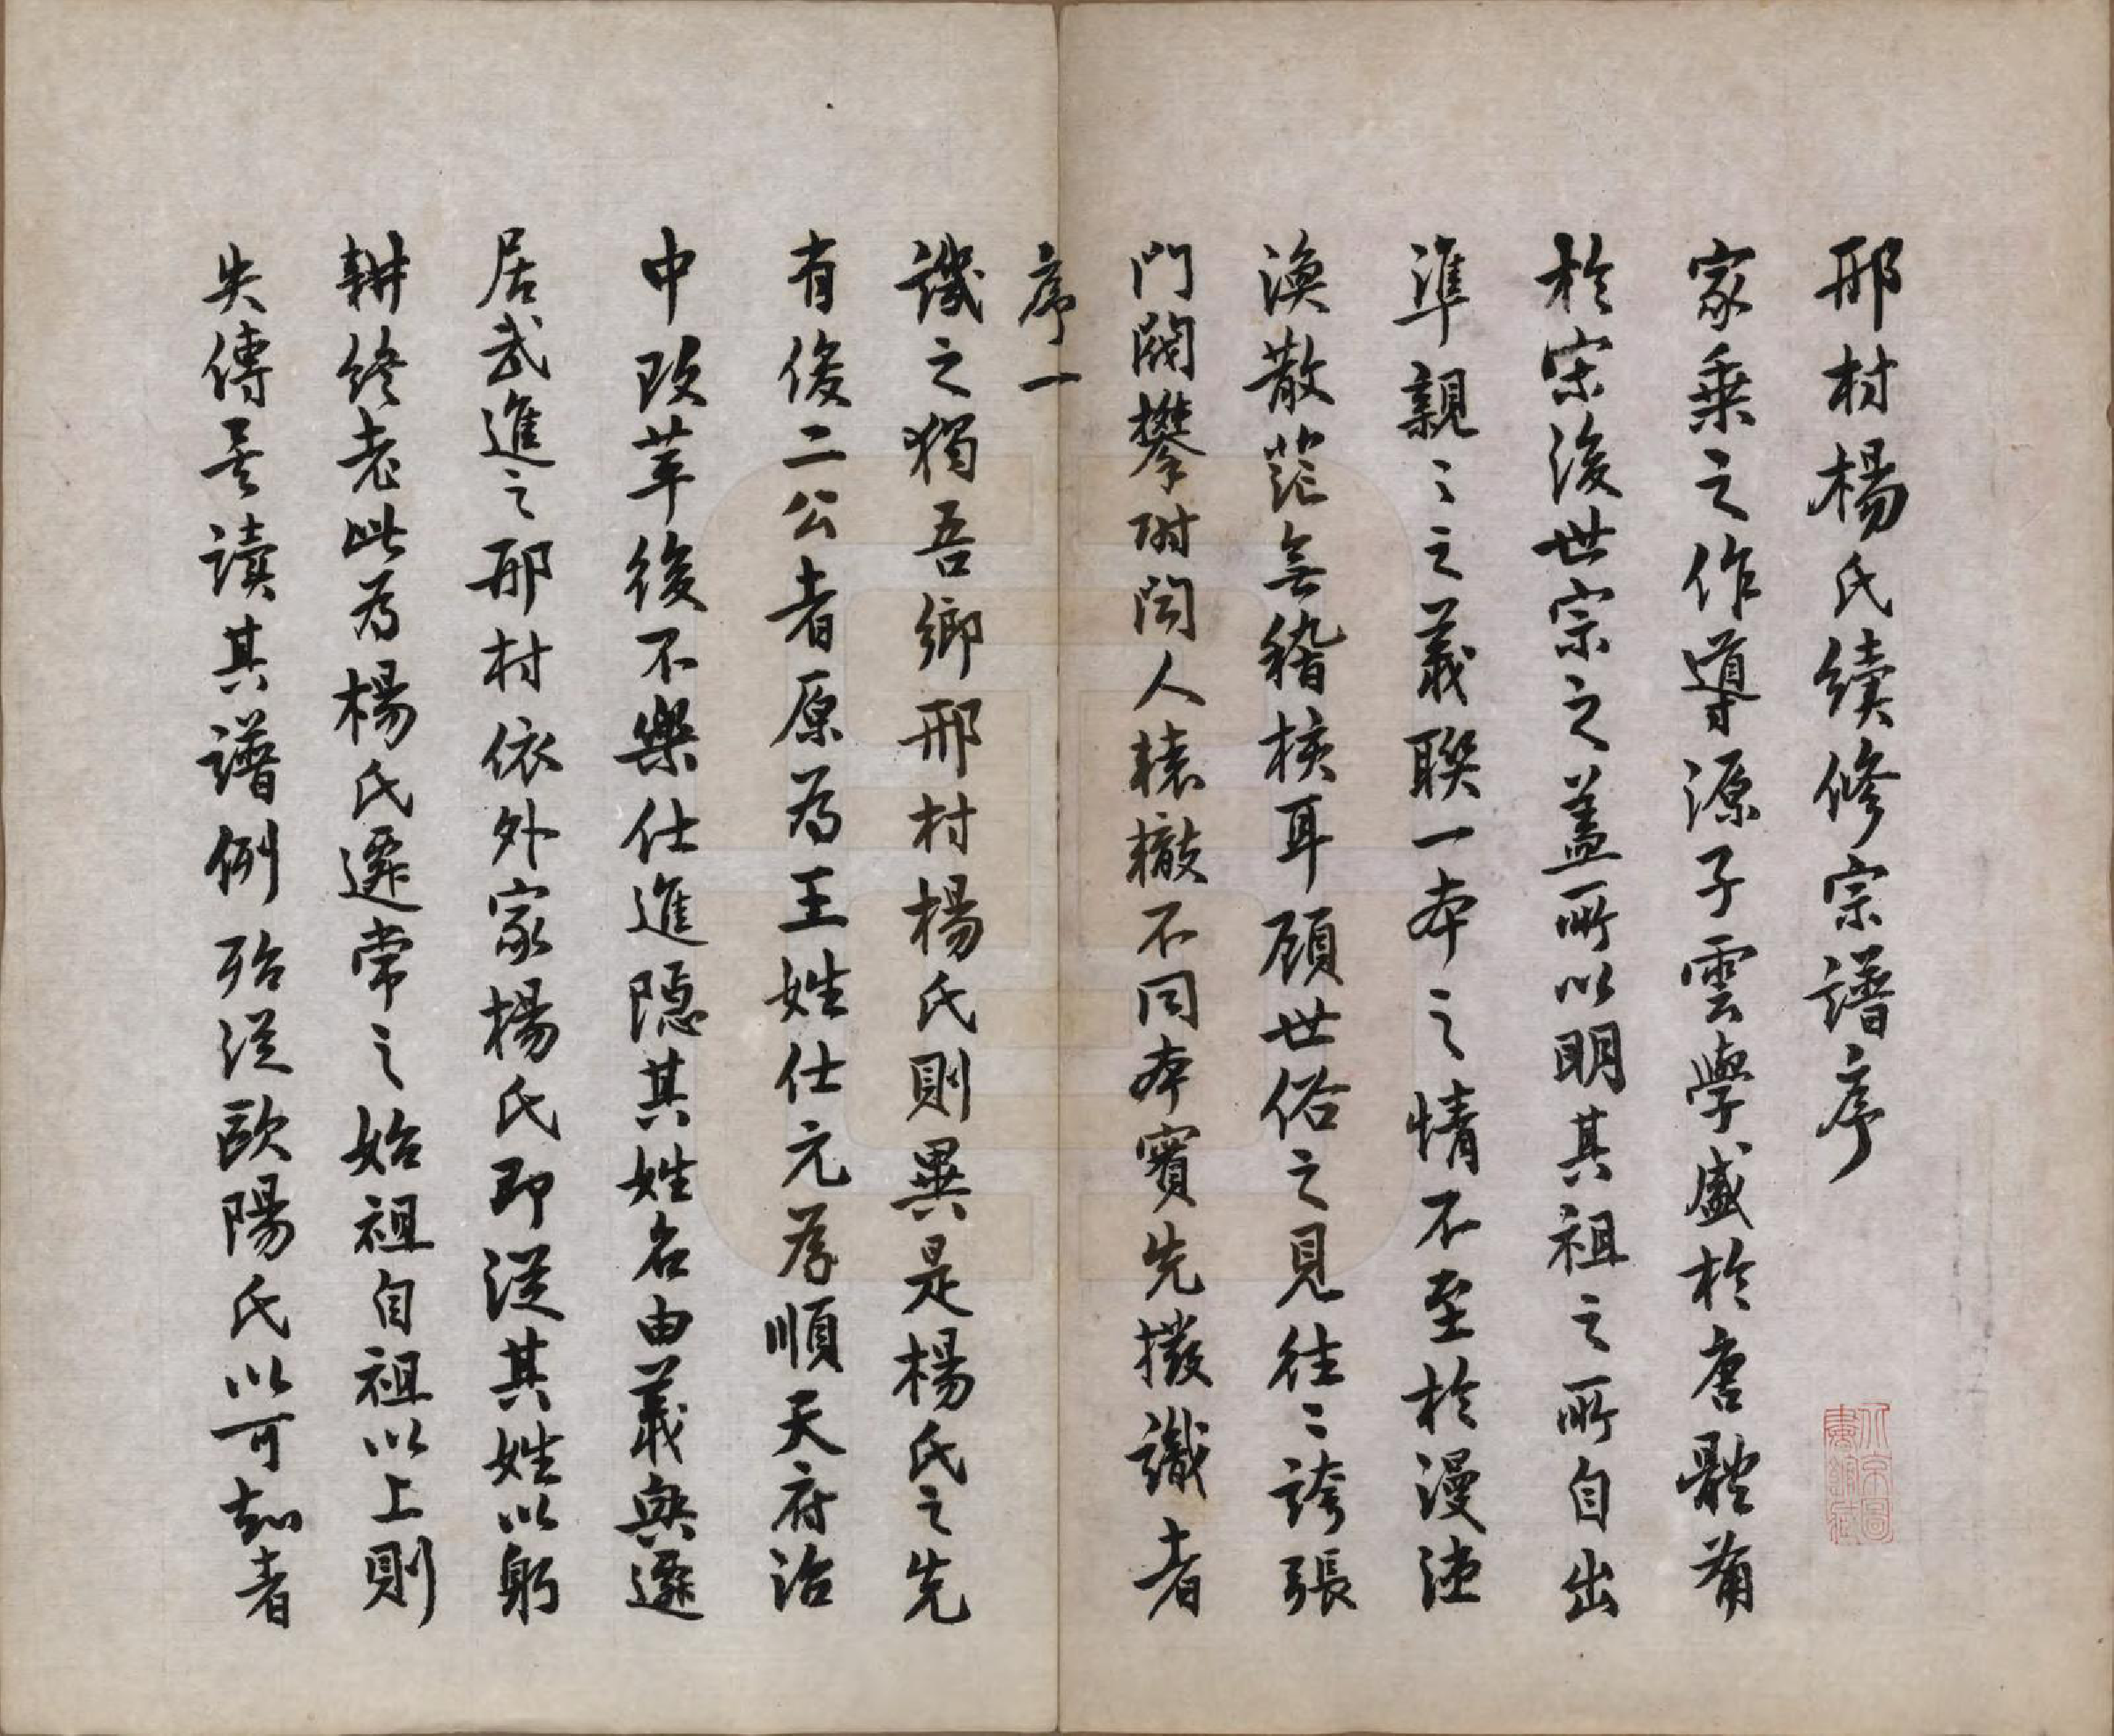 邢村楊氏續修宗譜序
家乘之作導源子雲學盛於唐體莆
於宋後世宗之蓋所以明其祖之所自出
準親〻之義聯一本之情不至於漫漶
渙散茫無稽核耳顧世俗之見往〻誇張
門閥攀附閥人轅轍不同本實先撥識者
序一
譏之獨吾鄉邢村楊氏則異是楊氏之先
有俊二公者原爲王姓仕元爲順天府治
中改革後不樂仕進隱其姓名由義興遷
居武進之邢村依外家楊氏即從其姓以躬
耕終老此爲楊氏遷常之始祖自祖以上則
失傳焉讀其譜例殆從歐陽氏以可知者